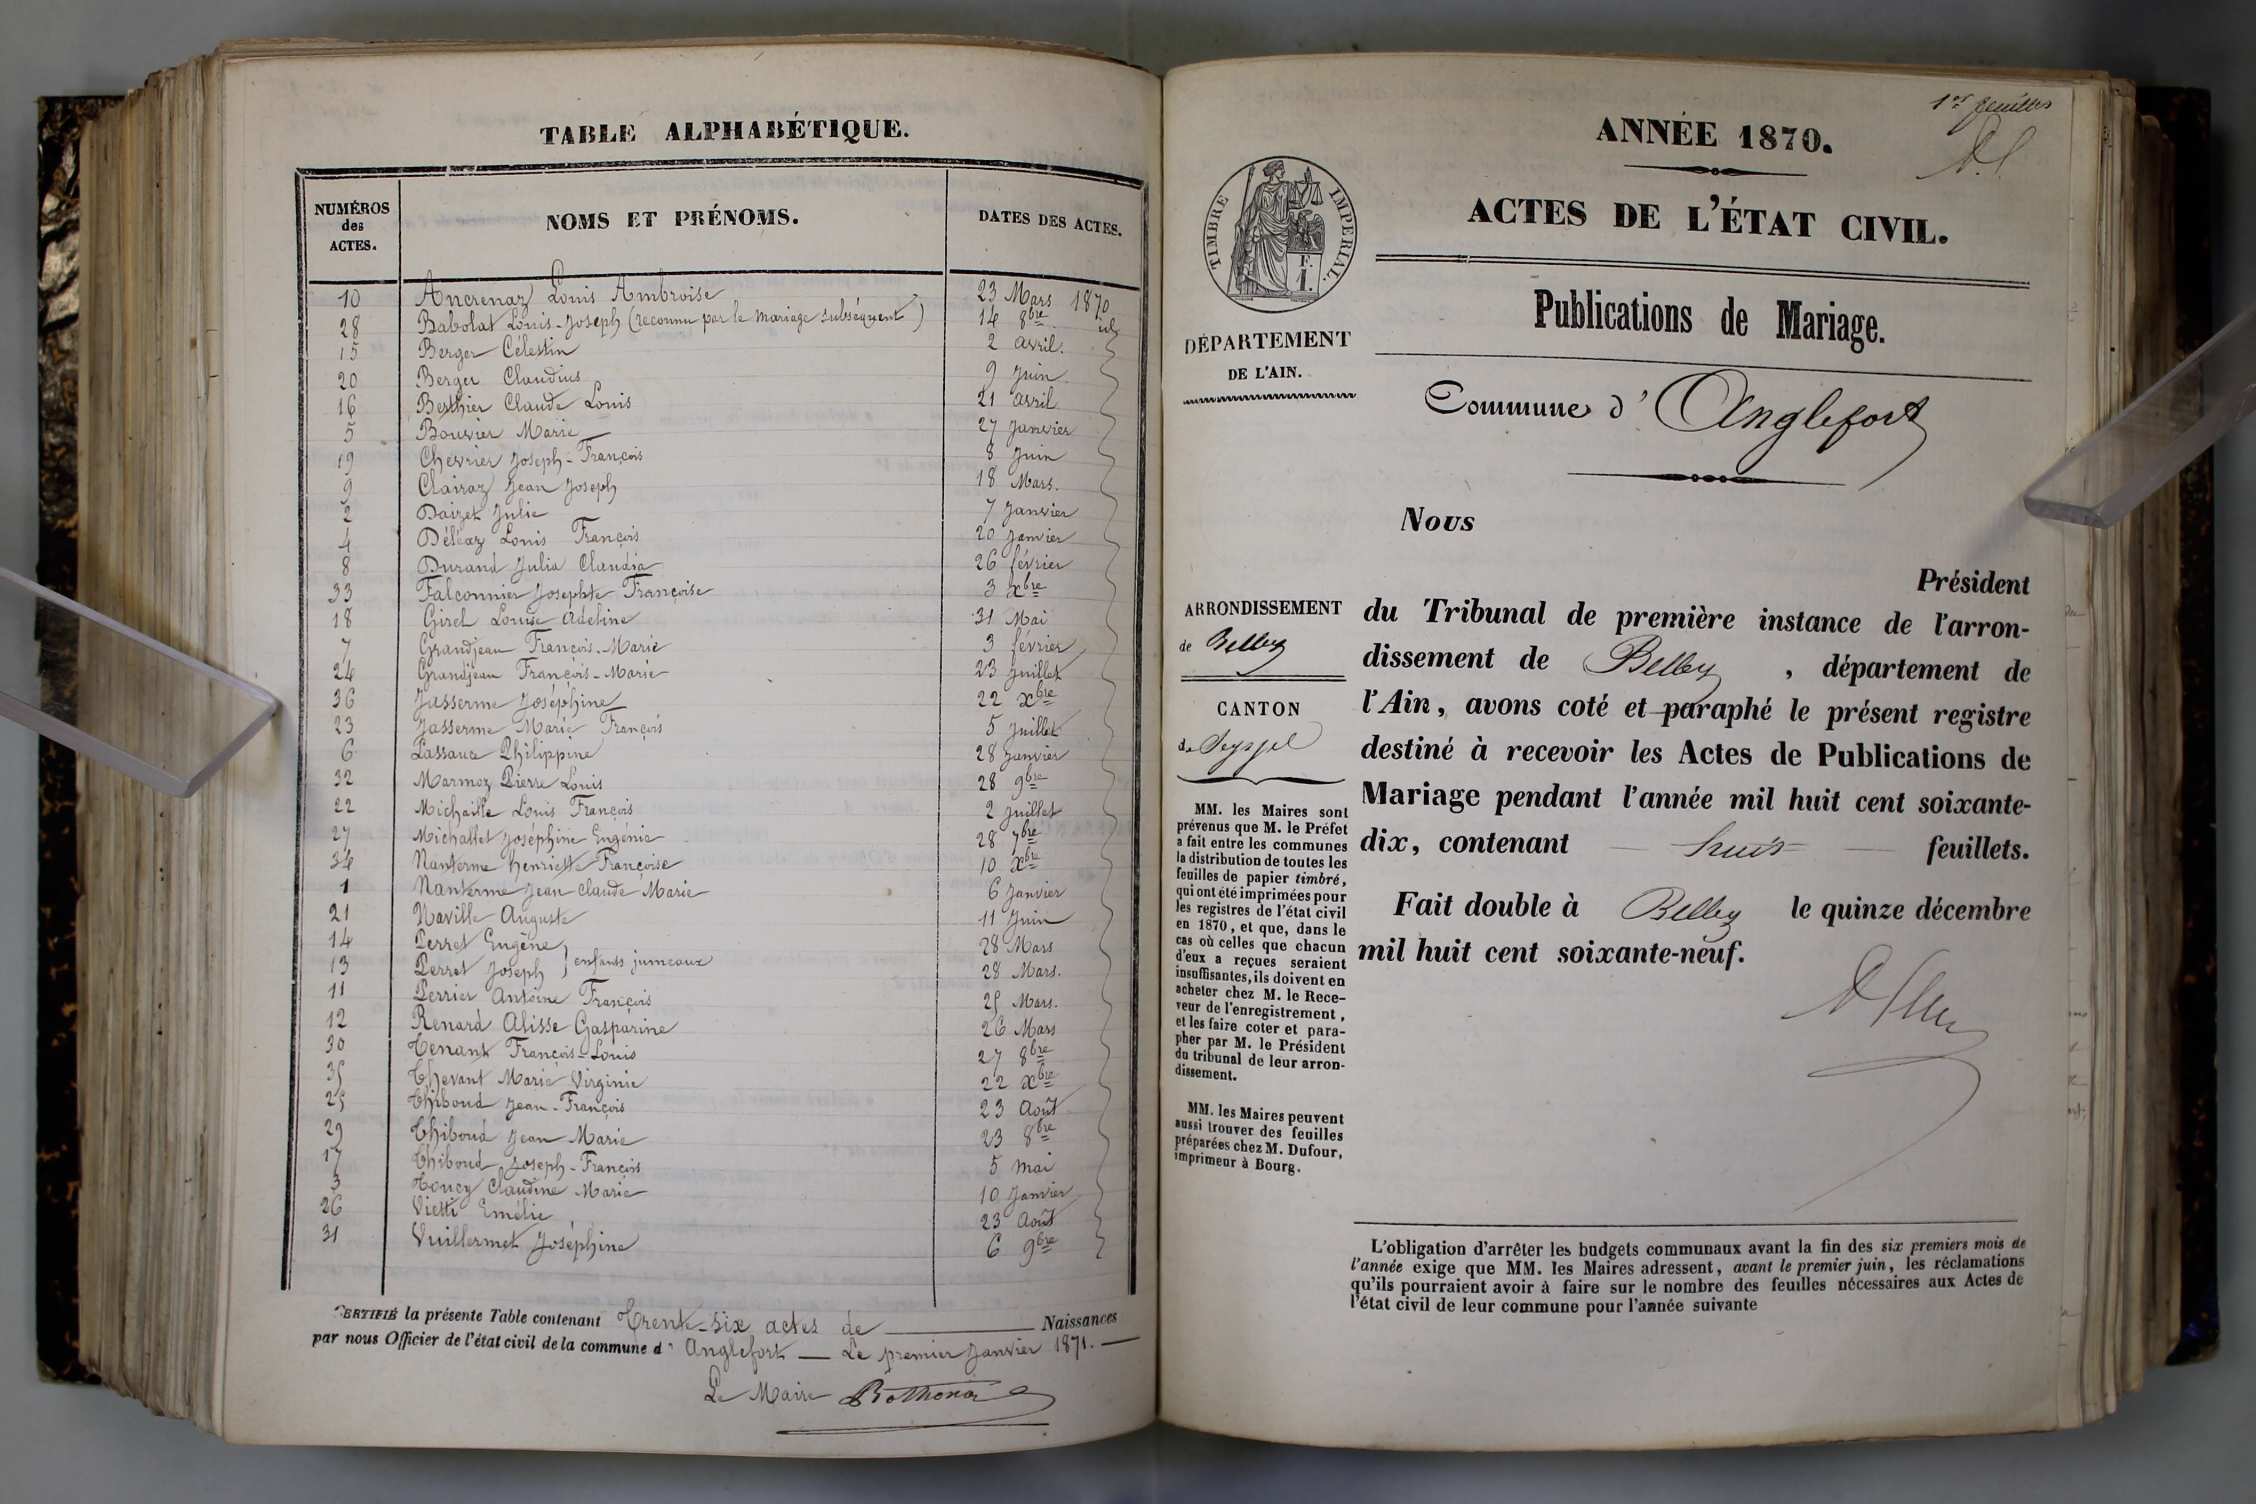 TABLE ALPHABÉTIQUE.
NUMÉROS des ACTES. NOMS ET PRÉNOMS. DATES DES ACTES.
10 Ancrenaz Louis Ambroise 23 Mars 1870
28 Babolat Louis-Joseph (reconnu par le mariage subséquent) 14 8bre id
15 Berger Célestin 2 avril.
20 Berger Claudius 9 Juin
16 Berthier Claude Louis 21 avril
5 Bouvier Marie 27 Janvier
19 Chevrier Joseph-François 8 Juin
9 Clairaz Jean Joseph 18 Mars.
2 Daizet Julie 7 Janvier
4 Déléaz Louis François 20 Janvier
8 Durand Julia Claudia 26 février
33 Falconnier Josephte Françoise 3 Xbre
18 Girel Louise Adeline 31 Mai
7 Grandjean François-Marie 3 février
24 Grandjean François-Marie 23 Juillet
36 Jasserme Joséphine 22 Xbre
23 Jasserme Marie François 5 Juillet
6 Lassauce Philippine 28 Janvier
32 Marmoz Pierre Louis 28 9bre
22 Michaille Louis François 2 Juillet
27 Michallet Joséphine Eugénie 28 7bre
34 Nanterme henriette Françoise 10 Xbre
1 Nanterme Jean Claude Marie 6 Janvier
21 Naville Auguste 11 Juin
14 Perret Eugène 28 Mars
13 Perret Joseph } enfants jumeaux 28 Mars.
11 Perrier Antoine François 25 Mars.
12 Renard Alisse Gasparine 26 Mars
30 Tenant François-Louis 27 8bre
35 Thevant Marie Virginie 22 Xbre
25 Thiboud Jean-François 23 Août
29 Thiboud Jean Marie 23 8bre
17 Thiboud Joseph-François 5 mai
3 Toucy Claudine Marie 10 Janvier
26 Vietti Emélie 23 Août
31 Vuillermet Joséphine 6 9bre
CERTIFIÉ la présente Table contenant Trente-six actes de Naissances
par nous Officier de l'état civil de la commune d' Anglefort — Le premier Janvier 1871. —
Le Maire Bothonod
1er feuillet
ANNÉE 1870.
ACTES DE L'ÉTAT CIVIL.
TIMBRE IMPERIAL.
F.
1.
Publications de Mariage.
DÉPARTEMENT
DE L'AIN.
Commune d' Anglefort
ARRONDISSEMENT
de Belley
CANTON
de Seyssel
MM. les Maires sont
prévenus que M. le Préfet
a fait entre les communes
la distribution de toutes les
feuilles de papier timbré,
qui ont été imprimées pour
les registres de l'état civil
en 1870, et que, dans le
cas où celles que chacun
d'eux a reçues seraient
insuffisantes, ils doivent en
acheter chez M. le Rece-
veur de l'enregistrement,
et les faire coter et para-
pher par M. le Président
du tribunal de leur arron-
dissement.
MM. les Maires peuvent
aussi trouver des feuilles
préparées chez M. Dufour,
imprimeur à Bourg.
Nous
Président
du Tribunal de première instance de l'arron-
dissement de Belley, département de
l'Ain, avons coté et paraphé le présent registre
destiné à recevoir les Actes de Publications de
Mariage pendant l'année mil huit cent soixante-
dix, contenant — huit — feuillets.
Fait double à Belley le quinze décembre
mil huit cent soixante-neuf.
L'obligation d'arrêter les budgets communaux avant la fin des six premiers mois de
l'année exige que MM. les Maires adressent, avant le premier juin, les réclamations
qu'ils pourraient avoir à faire sur le nombre des feuilles nécessaires aux Actes de
l'état civil de leur commune pour l'année suivante